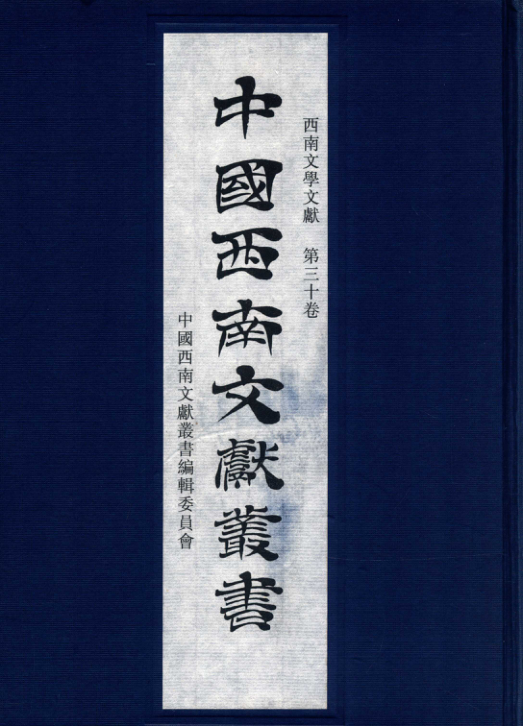 西南文學文獻 第三十卷
中國西南文獻叢書
中國西南文獻叢書編輯委員會